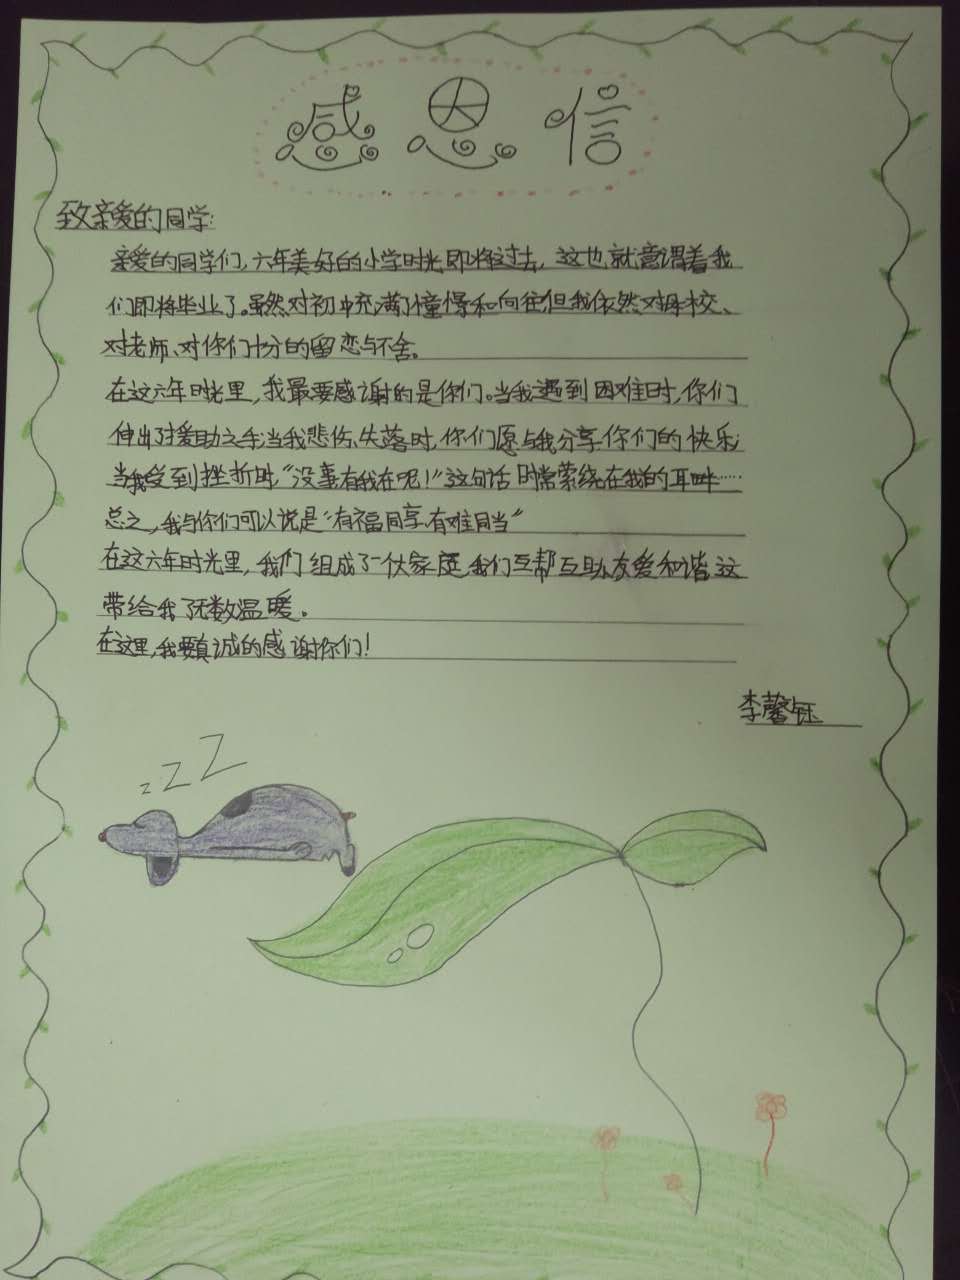 感恩信
致亲爱的同学:
亲爱的同学们,六年美好的小学时光即将过去,这也就意谓着我
们即将毕业了。虽然对初中充满了憧憬和向往但我依然对母校、
对老师、对你们十分的留恋与不舍。
在这六年时光里,我最要感谢的是你们。当我遇到困难时,你们
伸出了援助之手;当我悲伤、失落时,你们愿与我分享你们的快乐;
当我受到挫折时,“没事有我在呢!”这句话时常萦绕在我的耳畔……
总之,我与你们可以说是“有福同享有难同当”
在这六年时光里,我们组成了一个大家庭,我们互帮互助,友爱和谐,这
带给我了无数温暖。
在这里,我要真诚的感谢你们!
李馨钰
zZZ